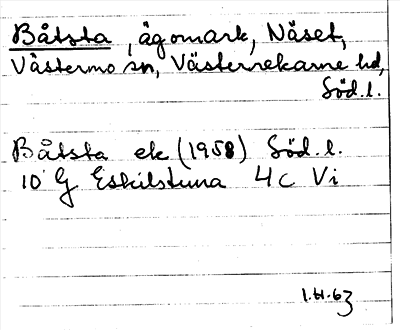 Båtsta, ägomark, Näset,
Västermo sn, Västerrekarne hd,
Söd. l.
Båtsta ek (1958) Söd. l.
10 G Eskilstuna 4c Vi